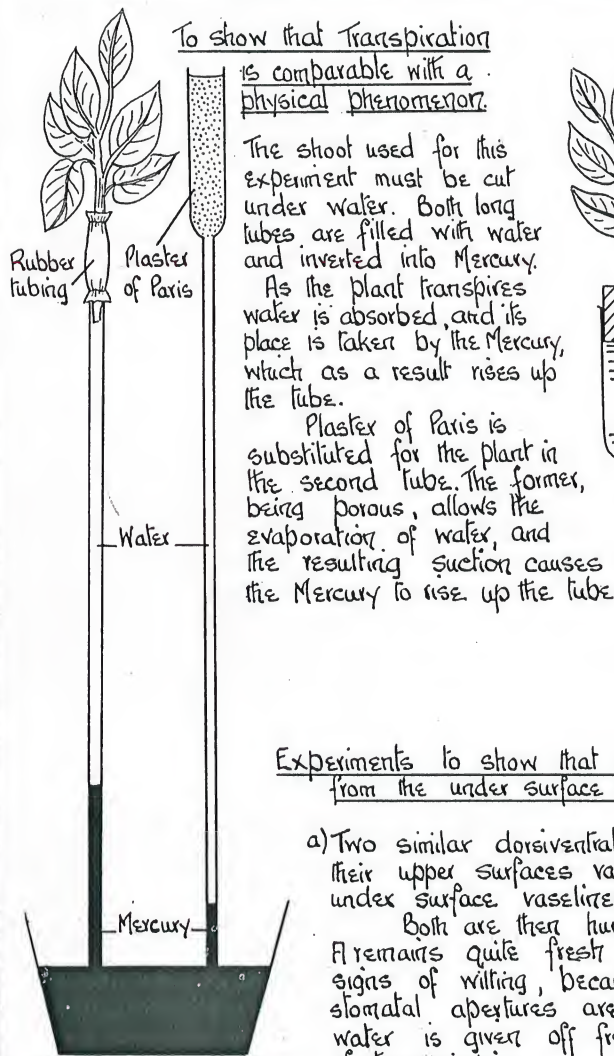 To show that Transpiration
is comparable with a
physical phenomenon.
The shoot used for this
experiment must be cut
under water. Both long
tubes are filled with water
and inverted into Mercury.
As the plant transpires
water is absorbed, and its
place is taken by the Mercury,
which as a result rises up
the tube.
Plaster of Paris is
substituted for the plant in
the second tube. The former,
being porous, allows the
evaporation of water, and
the resulting suction causes
the Mercury to rise up the tube
Rubber
tubing
Plaster
of Paris
Water
Mercury
Experiments to show that
from the under surface
a) Two similar dorsiventral
their upper surfaces va
under surface vaseline
Both are then hu
A remains quite fresh
signs of wilting, beca
stomatal apertures are
water is given off fr